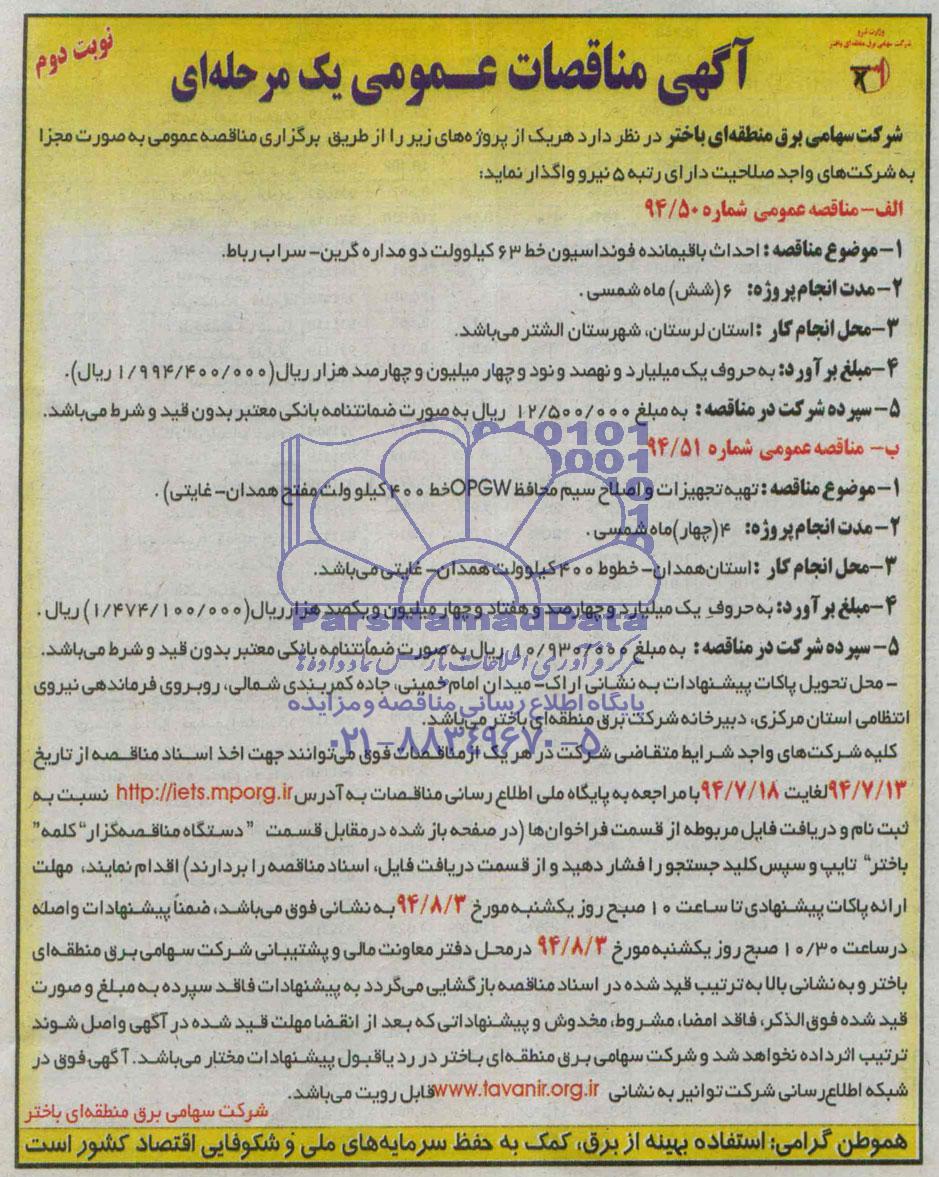 وزارت نیرو
شرکت سهامی برق منطقه‌ای باختر
نوبت دوم
آگهی مناقصات عمومی یک مرحله‌ای
شرکت سهامی برق منطقه‌ای باختر در نظر دارد هریک از پروژه‌های زیر را از طریق برگزاری مناقصه عمومی به صورت مجزا
به شرکت‌های واجد صلاحیت دارای رتبه ۵ نیرو واگذار نماید:
الف- مناقصه عمومی شماره ۹۴/۵۰
۱- موضوع مناقصه: احداث باقیمانده فونداسیون خط ۶۳ کیلوولت دو مداره گرین- سراب رباط.
۲- مدت انجام پروژه: ۶ (شش) ماه شمسی.
۳- محل انجام کار: استان لرستان، شهرستان الشتر می‌باشد.
۴- مبلغ برآورد: به حروف یک میلیارد و نهصد و نود و چهار میلیون و چهارصد هزار ریال (۱/۹۹۴/۴۰۰/۰۰۰ ریال).
۵- سپرده شرکت در مناقصه: به مبلغ ۱۲/۵۰۰/۰۰۰ ریال به صورت ضمانتنامه بانکی معتبر بدون قید و شرط می‌باشد.
ب- مناقصه عمومی شماره ۹۴/۵۱
۱- موضوع مناقصه: تهیه تجهیزات و اصلاح سیم محافظ OPGW خط ۴۰۰ کیلو ولت مفتح همدان- غایتی).
۲- مدت انجام پروژه: ۴ (چهار) ماه شمسی.
۳- محل انجام کار: استان همدان- خطوط ۴۰۰ کیلوولت همدان- غایتی می‌باشد.
۴- مبلغ برآورد: به حروف یک میلیارد و چهارصد و هفتاد و چهار میلیون و یکصد هزار ریال (۱/۴۷۴/۱۰۰/۰۰۰) ریال.
۵- سپرده شرکت در مناقصه: به مبلغ ۱۰/۹۳۰/۰۰۰ ریال به صورت ضمانتنامه بانکی معتبر بدون قید و شرط می‌باشد.
- محل تحویل پاکات پیشنهادات به نشانی اراک- میدان امام خمینی، جاده کمربندی شمالی، روبروی فرماندهی نیروی
انتظامی استان مرکزی، دبیرخانه شرکت برق منطقه‌ای باختر می‌باشد.
کلیه شرکت‌های واجد شرایط متقاضی شرکت در هر یک از مناقصات فوق می‌توانند جهت اخذ اسناد مناقصه از تاریخ
۹۴/۷/۱۳ لغایت ۹۴/۷/۱۸ با مراجعه به پایگاه ملی اطلاع رسانی مناقصات به آدرس http://iets.mporg.ir نسبت به
ثبت نام و دریافت فایل مربوطه از قسمت فراخوان‌ها (در صفحه باز شده درمقابل قسمت "دستگاه مناقصه‌گزار" کلمه"
باختر" تایپ و سپس کلید جستجو را فشار دهید و از قسمت دریافت فایل، اسناد مناقصه را بردارند) اقدام نمایند، مهلت
ارائه پاکات پیشنهادی تا ساعت ۱۰ صبح روز یکشنبه مورخ ۹۴/۸/۳ به نشانی فوق می‌باشد، ضمناً پیشنهادات واصله
در ساعت ۱۰/۳۰ صبح روز یکشنبه مورخ ۹۴/۸/۳ درمحل دفتر معاونت مالی و پشتیبانی شرکت سهامی برق منطقه‌ای
باختر و به نشانی بالا به ترتیب قید شده در اسناد مناقصه بازگشایی می‌گردد به پیشنهادات فاقد سپرده به مبلغ و صورت
قید شده فوق‌الذکر، فاقد امضا، مشروط، مخدوش و پیشنهاداتی که بعد از انقضا مهلت قید شده در آگهی واصل شوند
ترتیب اثر داده نخواهد شد و شرکت سهامی برق منطقه‌ای باختر در رد یا قبول پیشنهادات مختار می‌باشد. آگهی فوق در
شبکه اطلاع رسانی شرکت توانیر به نشانی www.tavanir.org.ir قابل رویت می‌باشد.
شرکت سهامی برق منطقه‌ای باختر
هموطن گرامی: استفاده بهینه از برق، کمک به حفظ سرمایه‌های ملی و شکوفایی اقتصاد کشور است
ParsNamadData
مرکز فرآوری اطلاعات پارس نماد داده‌ها
پایگاه اطلاع رسانی مناقصه و مزایده
۰۲۱-۸۸۳۴۹۶۷۰-۵